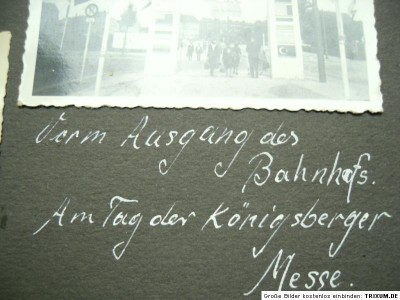 Vorm Ausgang des
Bahnhofs.
Am Tag der Königsberger
Messe.
Große Bilder kostenlos einbinden: TRIXUM.DE